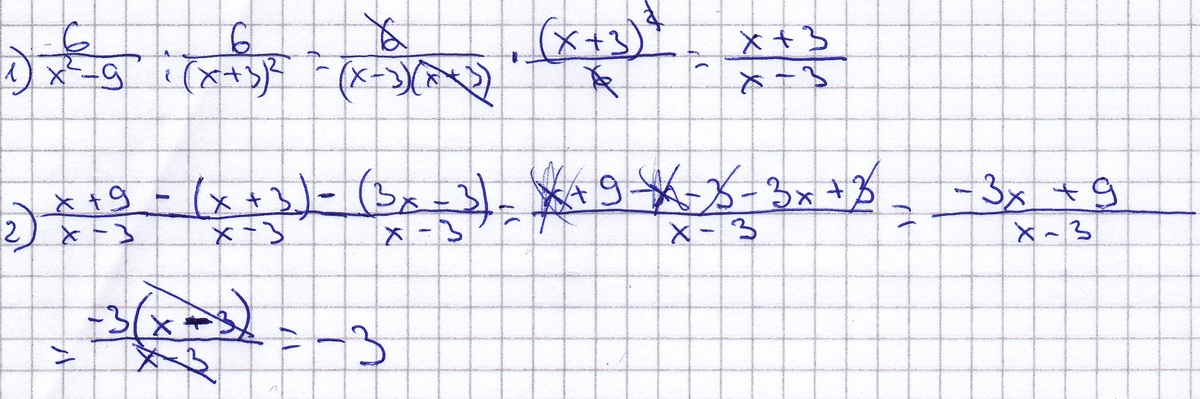 1) 6/(x²-9) : 6/(x+3)² = 6/((x-3)(x+3)) · (x+3)²/6 = (x+3)/(x-3)
2) (x+9)/(x-3) - (x+3)/(x-3) - (3x-3)/(x-3) = (x+9-x-3-3x+3)/(x-3) = (-3x+9)/(x-3)
= -3(x-3)/(x-3) = -3